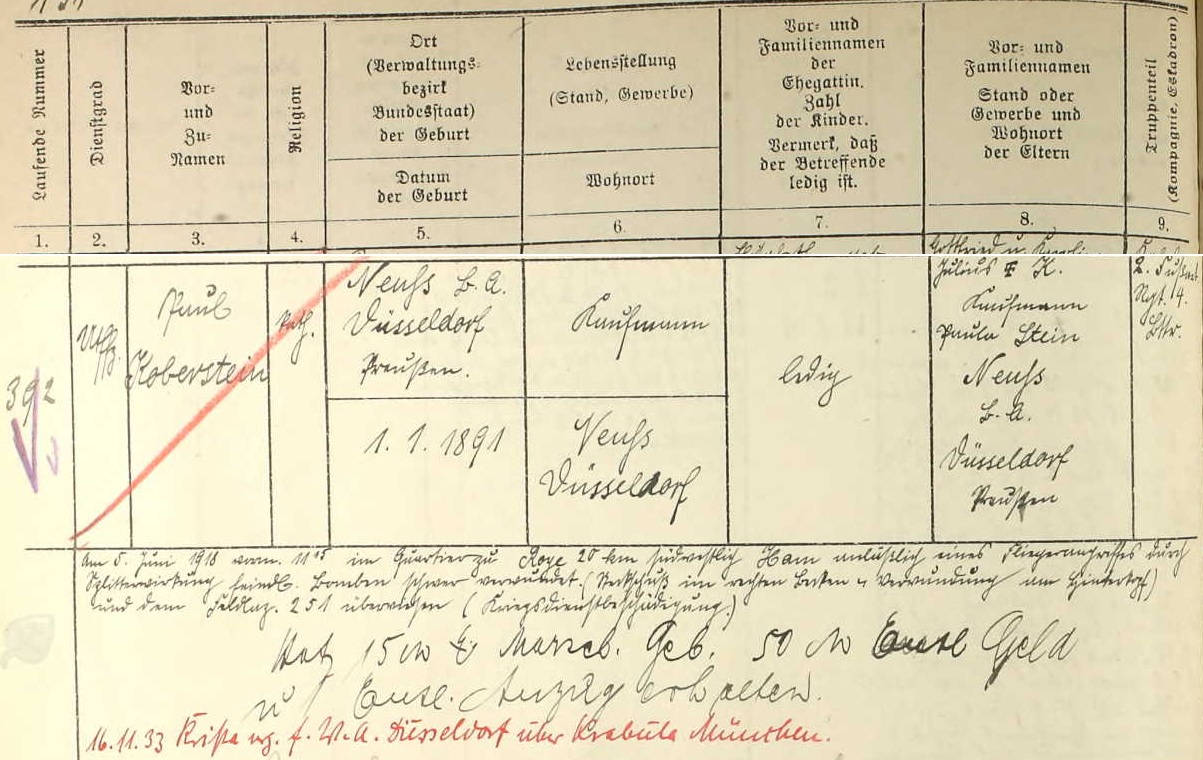 Laufende Nummer
Dienstgrad
Vor-
und
Zu-
Namen
Religion
Ort
(Verwaltungs-
bezirk
Bundesstaat)
der Geburt
Datum
der Geburt
Lebensstellung
(Stand, Gewerbe)
Wohnort
Vor- und
Familiennamen
der
Ehegattin.
Zahl
der Kinder.
Vermerk, daß
der Betreffende
ledig ist.
Vor- und
Familiennamen
Stand oder
Gewerbe und
Wohnort
der Eltern
Truppenteil
(Kompagnie, Eskadron)
1.
2.
3.
4.
5.
6.
7.
8.
9.
392
Utffz.
Paul
Koberstein
kath.
Neuss B.A.
Düsseldorf
Preußen.
1. 1. 1891
Kaufmann
Neuss
Düsseldorf
ledig
Julius K.
Kaufmann
Paula Stein
Neuss
B.A.
Düsseldorf
Preußen
2. Fußart.
Rgt. 4.
Bttr.
Am 5. Juni 1918 vorm. 11 15 im Quartier zu Roye 20 km südwestlich Ham anläßlich eines Fliegerangriffes durch
Splitterwirkung feindl. Bomben schwer verwundet. (Steckschuß im rechten Becken u. Verwundung am Hinterkopf)
und dem Feldlaz. 251 überwiesen (Kriegsdienstbeschädigung.)
Hat 15 M Marsch. Geb. 50 M Entl Geld
u Entl. Anzug erhalten.
16.11.33 Krista f. V.A. Düsseldorf über Krabula München.